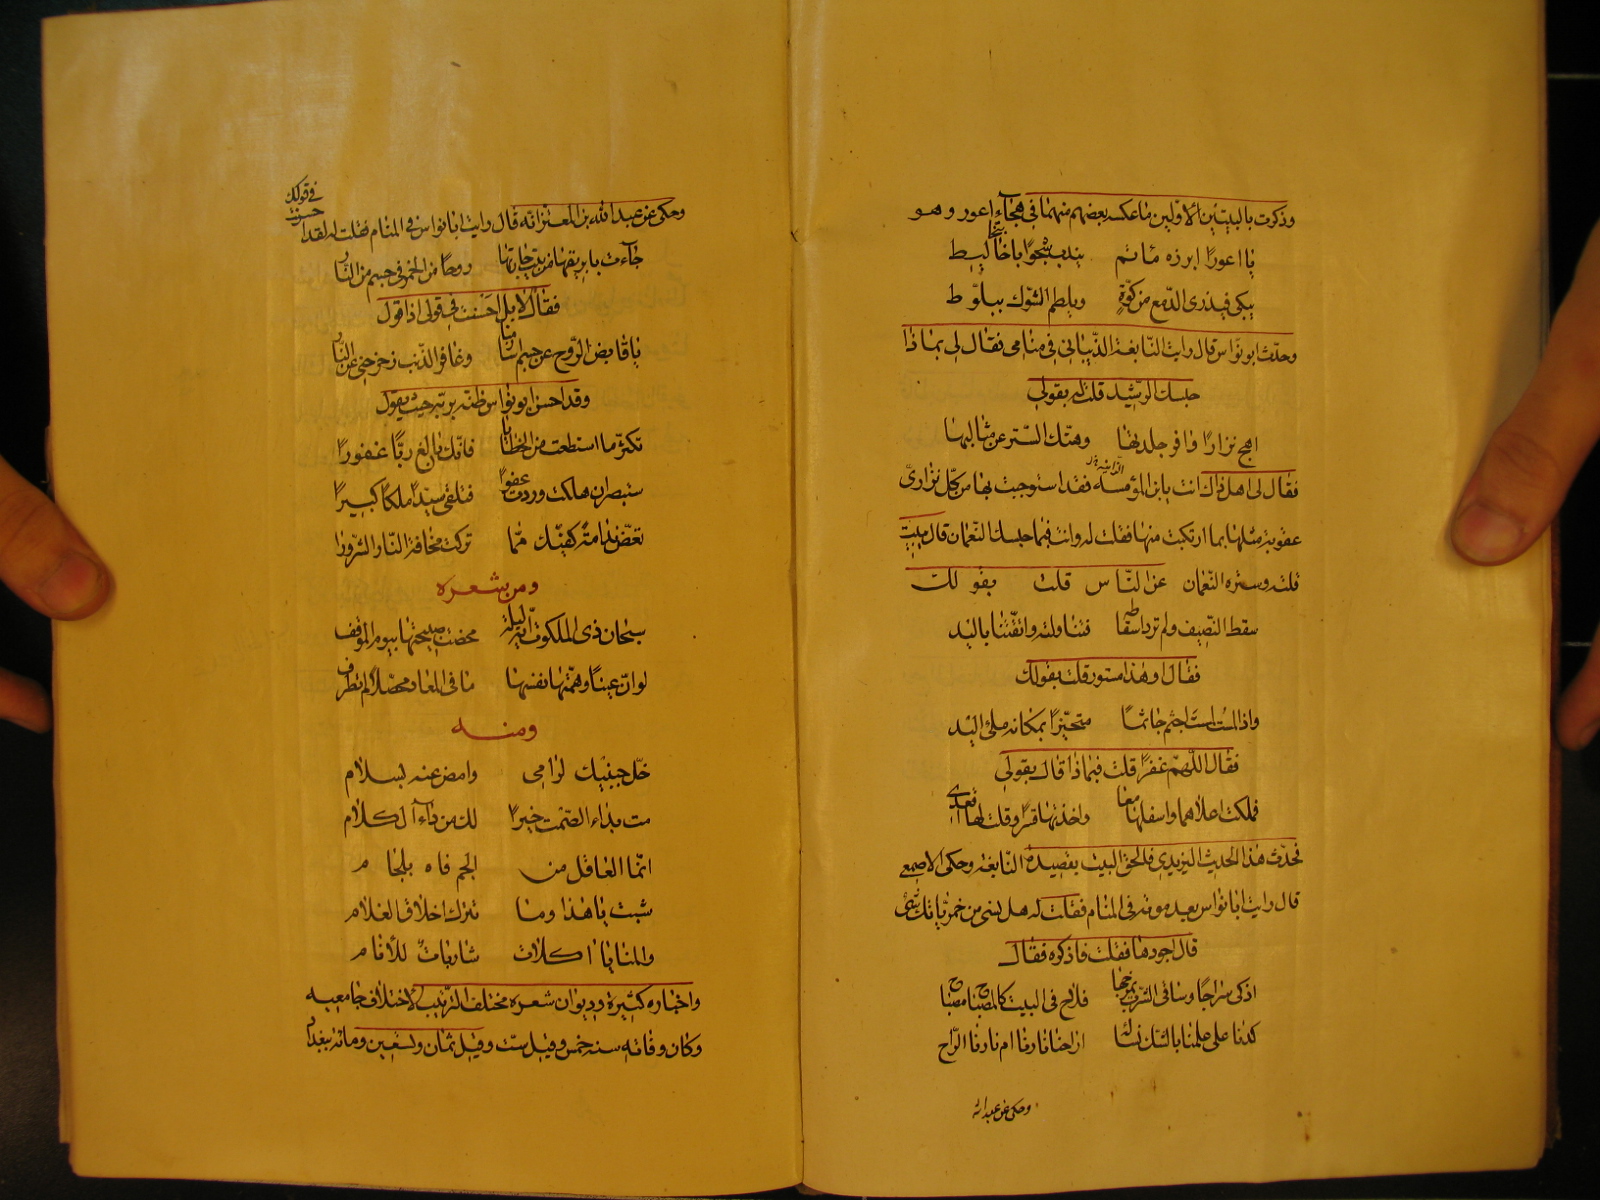 وذكرت بالبيتين الاولين ما عكسه بعضهم منهما في هجآء اعور وهو
يا اعورًا ابرزه مأتم يندب شجوًا باخاليط
يبكي فيذري الدمع من كوّة ويلطم الشوك ببلوط
وحدّث ابو نواس قال رايت النابغة الذبياني في منامي فقال لي بماذا
حبسك الرشيد قلت له بقولي
اهج نزارًا وافر جلدتها وهتك الستر عن مثالبها
فقال لي اهل ذاك انت يا ابن المؤمسه فقد استوجبت بها من كل نزاري
عقوبة مثلها بما ارتكبت منها فقلت له وانت فيما حبسك النعمان قال ببيت
قلته وستره النعمان عن الناس قلت بقولك
سقط النصيف ولم ترد اسقاطه فتناولته واتقتنا باليد
فقال او هذا مستور قلت بقولك
واذا لمست لمست اجثم جاثما متحيزًا بمكانه ملئ اليد
فقال اللهم غفرًا قلت فبماذا قال بقولي
فملكت اعلاهما واسفلها معا واخذتها قسرًا وقلت لها اقعدي
فحدّث هذا الحديث اليزيدي فالحق البيت بقصيدة النابغه وحكى الاصمعي
قال رايت ابا نواس بعد موته في المنام فقلت له هل بقي من خمرياتك شئ
قال اجودها فقلت فاذكره فقال
اذكى سراجًا وساقي الشرب يمزجها فلاح في البيت كالمصباح مصباح
كدنا على علمنا بالشك نسألها اراحنا نارنا ام نارنا الراح
وحكى عن عبد الله
وحكى عن عبد الله بن المعتز انه قال رايت ابا نواس في المنام فقلت له لقد احسنت في قولك
جآءت بابريقها من بيت خمارتها روحًا من الخمر في جسم من النار
فقال لا بل احسنت في قولي اذ اقول
يا قابض الروح عن جسم اسا زمنا وغافر الذنب زحزحني عن النار
وقد احسن ابو نواس ظنه بربه حيث يقول
تكثر ما استطعت من الخطايا فانك بالغ ربًّا غفورًا
ستبصر ان هلكت وردت عفوًا فتلقى سيدًا ملكًا كبيرًا
تعض ندامة كفيك مما تركت مخافة النار الشرورا
ومن شعره
سبحان ذي الملكوت اية ليلة مخضت صبيحتها بيوم الموقف
لو ان عينًا وهمتها نفسها ما في المعاد محصلاً لم تطرف
ومنه
خل جنبيك لرامي وامض عنه بسلام
مت بداء الصمت خير لك من داء الكلام
انما العاقل من الجم فاه بلجام
شبت يا هذا وما تترك اخلاق الغلام
والمنايا اكلات شاربات للأنام
واخباره كثيرة وديوان شعره مختلف الترتيب لاختلاف جامعيه
وكان وفاته سنه خمس وقيل ست وقيل ثمان وتسعين ومائة ببغداد